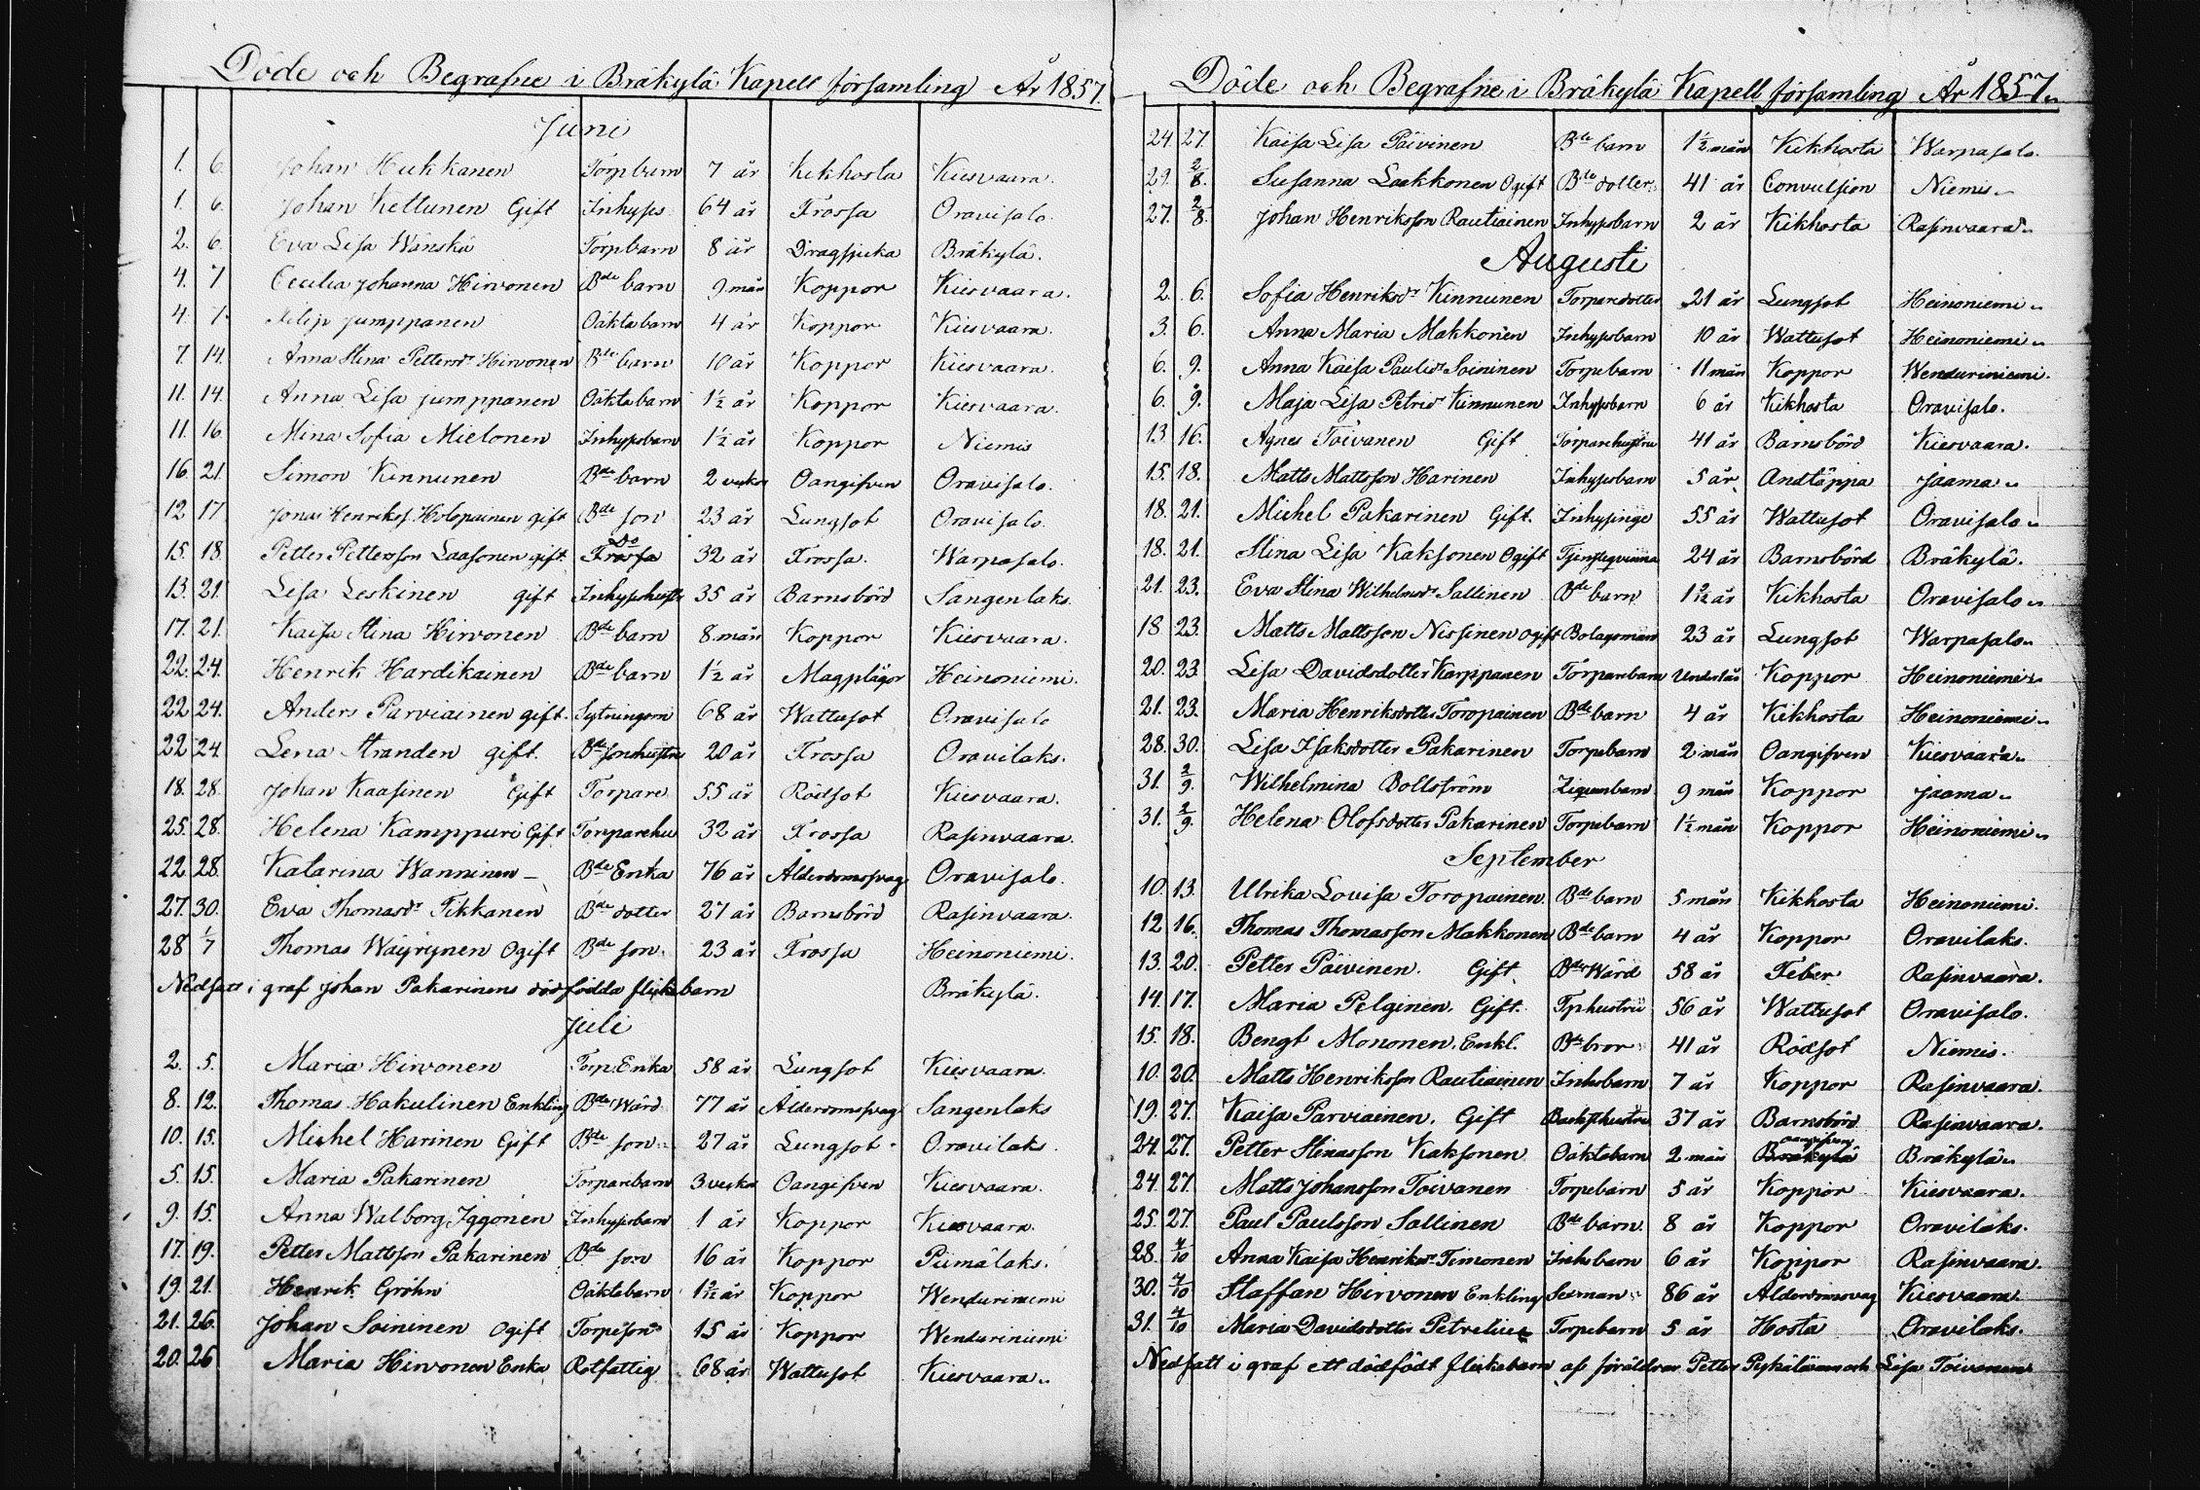 Döde och Begrafne i Bräkylä Kapell församling År 1857.
Juni
1. 6. Johan Hukkanen Torpbarn 7 år Kikhosta Kiesvaara.
1. 6. Johan Kettunen Gift Inhyses 64 år Frossa Oravisalo.
2. 6. Eva Lisa Wänskä Torpbarn 8 år Dragsjuka Bräkylä.
4. 7 Cecilia Johanna Hirvonen Bde barn 9 mån Koppor Kiesvaara.
4. 7. Filip Jumppanen Oäkta barn 4 år Koppor Kiesvaara.
7. 14. Anna Stina Pettersdr Hirvonen Bde barn 10 år Koppor Kiesvaara.
11. 14. Anna Lisa Jumppanen Oäkta barn 1½ år Koppor Kiesvaara.
11. 16. Mina Sofia Mielonen Inhysbarn 1½ år Koppor Niemis
16. 21. Simon Kinnunen Bde barn 2 veckor Oangifven Oravisalo.
12. 17. Jonas Henrikss. Holopainen gift Bde son 23 år Lungsot Oravisalo.
15. 18. Petter Pettersson Laasonen gift. Frossa Do 32 år Frossa. Warpasalo.
13. 21. Lisa Leskinen gift Inhyshustr 35 år Barnsbörd Sangenlaks.
17. 21. Kaisa Stina Hirvonen Bde barn 8. mån Koppor Kiesvaara.
22. 24. Henrik Hardikainen Bde barn 1½ år Magplågor Heinoniemi.
22. 24. Anders Parviainen gift. Sytningsm 68 år Wattusot Oravisalo
22 24. Lena Stranden gift. Bde Sonhustru 20 år Frossa Oravilaks.
18. 28. Johan Kaasinen Gift Torpare 55 år Rödsot Kiesvaara.
25. 28. Helena Kamppuri Gift Torparehu 32 år Frossa Rasinvaara.
22 28. Katarina Wanninen – Bde Enka 76 år Ålderdomssvag Oravisalo.
27. 30. Eva Thomasdr Tikkanen Bde dotter 27 år Barnsbörd Rasinvaara.
28 1/7 Thomas Wäyrynen Ogift Bde son. 23 år Frossa Heinoniemi.
Nedsatt i graf Johan Pakarinens dödfödda flickebarn Bräkylä.
Juli
2. 5. Maria Hirvonen Torp.Enka 58 år Lungsot Kiesvaara.
8. 12. Thomas Hakulinen Enkling Bde Wärd 77 år Ålderdomssvag Sangenlaks
10. 15. Michel Harinen Gift Bde son 27 år Lungsot Oravilaks.
5. 15. Maria Pakarinen Torparebarn 3 veckor Oangifven Kiesvaara.
9. 15. Anna Walborg Iggonen Inhysbarn 1 år Koppor Kiesvaara.
17. 19. Petter Mattsson Pakarinen Bde son 16 år Koppor Piimälaks.
19. 21. Henrik Gröhn Oäktabarn 1½ år Koppor Wenduriniemi
21. 26. Johan Soininen Ogift Torpeson 15 år Koppor Wenduriniemi
20. 26 Maria Hirvonen Enka Rotfattig 68 år Wattusot Kiesvaara.
Döde och Begrafne i Bräkylä Kapell församling År 1857.
24. 27. Kaisa Lisa Päivinen Bde barn 1½ mån Kikhosta Warpasalo.
29. 2/8. Susanna Laakkonen Ogift Bde dotter. 41 år Convulsion Niemis.
27. 2/8. Johan Henriksson Rautiainen Inhysbarn 2 år Kikhosta Rasinvaara.
Augusti
2. 6. Sofia Henriksdr Kinnunen Torparedotter 21 år Lungsot Heinoniemi.
3. 6. Anna Maria Makkonen Inhysbarn 10 år Wattusot Heinoniemi.
6. 9. Anna Kaisa Paulsdr Soininen Torpebarn 11 mån Koppor Wenduriniemi.
6. 9. Maja Lisa Petrisdr Kinnunen Inhysbarn 6 år Kikhosta Oravisalo.
13. 16. Agnes Toivanen Gift Torparehustru 41 år Barnsbörd Kiesvaara.
15. 18. Matts Mattsson Harinen Inhysesbarn 5 år Andtäppa Jaama.
18. 21. Michel Pakarinen Gift. Inhysinge 55 år Wattusot Oravisalo.
18. 21. Stina Lisa Kaksonen Ogift Tjensteqvinna 24 år Barnsbörd Bräkylä.
21. 23. Eva Stina Wilhelmsdr Sallinen Bde barn 1½ år Kikhosta Oravisalo.
18. 23. Matts Mattsson Nissinen Ogift Bolagsman 23 år Lungsot Warpasalo.
20. 23. Lisa Davidsdotter Karppanen Torparebarn Koppor Heinoniemi.
21. 23. Maria Henriksdotter Toropainen Bde barn 4 år Kikhosta Heinoniemi.
28. 30. Lisa Isaksdotter Pakarinen Torpebarn 2 mån Oangifven Kiesvaara.
31. 2/9. Wilhelmina Bollström Ziguenbarn 9 mån Koppor Jaama.
31. 2/9. Helena Olofsdotter Pakarinen Torpebarn 1½ mån Koppor Heinoniemi.
September
10. 13. Ulrika Lovisa Toropainen. Bde barn 5 mån Kikhosta Heinoniemi.
12. 16. Thomas Thomasson Makkonen Bde barn 4 år Koppor Oravilaks.
13. 20. Petter Päivinen. Gift Bde Wärd 58 år Feber Rasinvaara.
14. 17. Maria Pelginen. Gift. Tphustru 56 år Wattusot Oravisalo.
15. 18. Bengt Mononen. Enkl. Bde bror 41 år Rödsot Niemis.
10. 20. Matts Henriksson Rautiainen Inhsbarn 7 år Koppor Rasinvaara.
19. 27. Kaisa Parviainen. Gift 37 år Barnsbörd Rasinvaara.
24. 27. Petter Stinasson Kaksonen Oäktabarn 2 mån Bräkylä oangifven Bräkylä.
24. 27. Matts Johansson Toivanen Torpebarn 5 år Koppor Kiesvaara.
25. 27. Paul Paulsson Sallinen Bde barn. 8 år Koppor Oravilaks.
28. 4/10 Anna Kaisa Henriksdr Timonen Inhsbarn 6 år Koppor Rasinvaara.
30. 4/10 Staffan Hirvonen Enkling Sexman 86 år Ålderdomsvag Kiesvaara.
31. 4/10 Maria Davidsdotter Petrelius Torpebarn 5 år Hosta Oravilaks.
Nedsatt i graf ett dödfödt flickebarn af föräldrar Petter och Lisa Toivanen